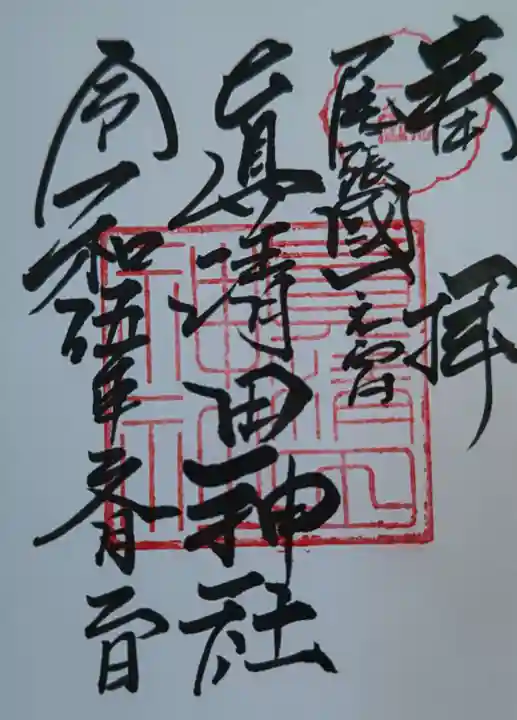 奉拝
尾張國一之宮
真清田神社
令和五年春一日